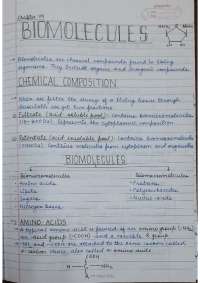 Chapter-09
BIOMOLECULES
Biomolecules are chemical compounds found in living
organisms. They include organic and inorganic compounds.
CHEMICAL COMPOSITION
When we filter the slurry of a living tissue through
we get two fractions
Filtrate (acid soluble pool): Contains biomicromolecules
represents the cytoplasmic composition
Retentate (acid insoluble pool): Contains biomacromolecules
Contains molecules from cytoplasm and organelles
BIOMOLECULES
Biomicromolecules
Biomacromolecules
Amino acids
Proteins
Lipids
Polysaccharides
Sugars
Nucleic acids
Nitrogen bases
AMINO ACIDS
A typical amino acid is formed of an amino group (-NH₂)
an acid group (-COOH) and a variable R group
and -COOH are attached to the same carbon called
α-carbon, hence also called α-amino acids
COOH